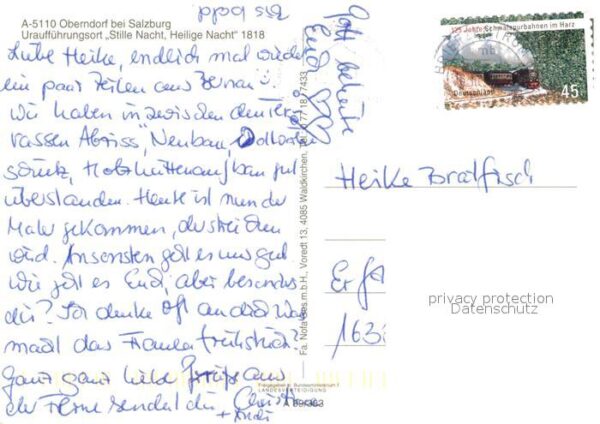 A-5110 Oberndorf bei Salzburg
Uraufführungsort „Stille Nacht, Heilige Nacht" 1818
Liebe Heike, endlich mal wieder
ein paar Zeilen aus
Wir haben inzwischen den Ter-
rassen Abriss, Neubau,
schutz, Holzhüttenaufbau gut
überstanden. Heute ist nun der
Maler gekommen, der streichen
wird. Ansonsten geht es uns gut
Wie geht es Euch, aber besonders
dir? Ich denke oft an dich Was
macht das Frauenfrühstück?
Ganz ganz liebe Grüße aus
der Ferne sendet dir
+ Andi
bis bald
Gott behüte
Euch
Fa. Nofa-des m.b.H., Voredt 13, 4085 Waldkirchen, Tel. 07718/77433
Freigegeben v. Bundesministerium f.
LANDESVERTEIDIGUNG
125 Jahre Schmalspurbahnen im Harz
Deutschland
45
Heike Bratfisch
Erf
163
privacy protection
Datenschutz